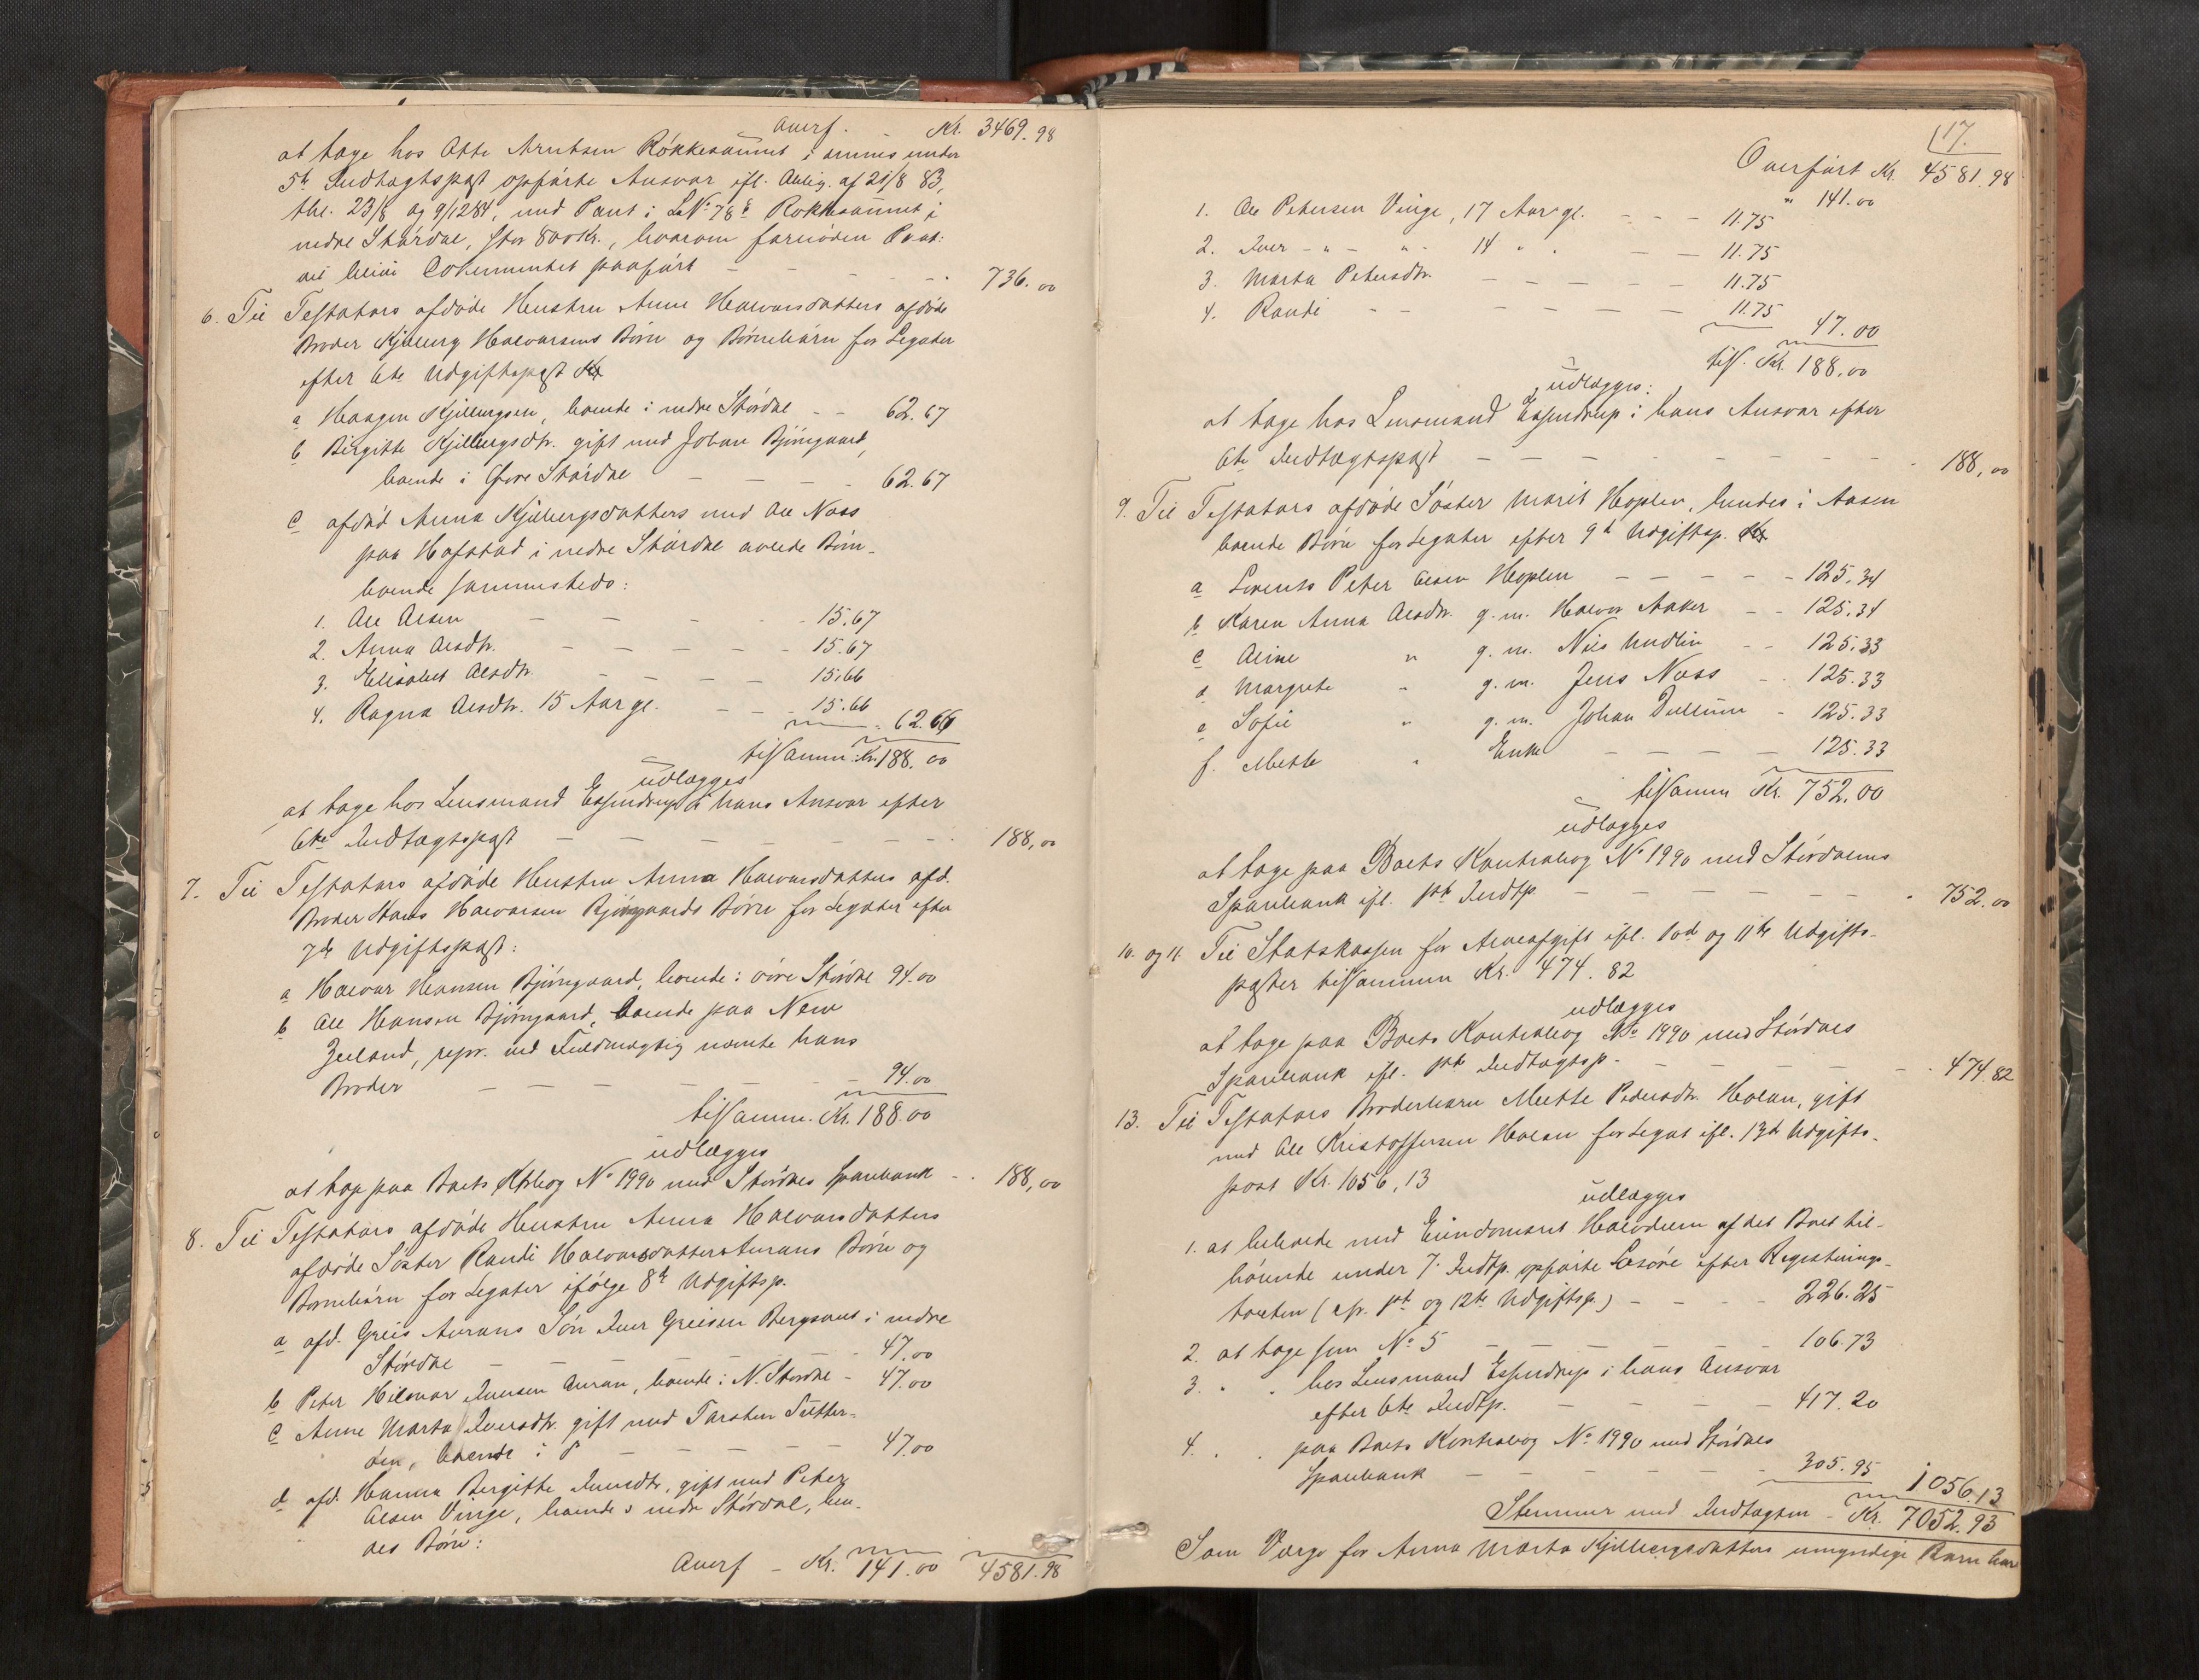 Overf. - Kr. 3469.98
at tage hos Otte Arntsen Røkkesaunet i ammes under
5te Indtægtspost opførte Ansvar ifl. Oblig. af 21/8 83,
thl. 23/8 og 9/12 84, med Pant i LN: 78 c Røkkesaunet i
nedre Stördal, stor 800 Kr., hvorom fornöden Paat:
vil blive Dokumentet paaført - - - 736.00
6. Til Testators afdöde Hustru Anne Halvorsdatters afdöde
Broder Kjelberg Halvorsens Börn og Börnebörn for Legater
efter 6te Udgiftspost
a Haagen Kjelbergsen, boende i nedre Stördal - - 62.67
b Birgitte Kjelbergsdtr. gift med Johan Björngaard,
boende i Övre Stördal - - - 62.67
c afdöd Anna Kjelbergsdatters med Ole Naas
paa Hofstad i nedre Stördal avlede Börn -
boende sammesteds:
1. Ole Olsen - - - - 15.67
2. Anna Olsdtr. - - - - - 15.67
3. Elisabet Olsdtr. - - - - 15.66
4. Ragna Olsdtr. 15 Aar gl. - - - 15.66
62.66
tilsamm. Kr. 188.00
udlægges
at tage hos Lensmand Essendrup i hans Ansvar efter
6te Indtægtspost - - - - - - 188,00
7. Til Testators afdöde Hustru Anna Halvorsdatters afd.
Broder Hans Halvorsen Björngaards Börn for Legater efter
7de Udgiftspost:
a Halvor Hansen Björngaard, boende i övre Stördal 94.00
b Ole Hansen Björngaard, boende paa New
Zeeland, repr. ved Fuldmægtig nævnte hans
Broder - - - - - 94.00
tilsamm. Kr. 188.00
udlægges
at tage paa Boets Ktrbog No 1990 med Stördals Sparebank - . 188,00
8. Til Testators afdöde Hustru Anna Halvorsdatters
afdöde Söster Randi Halvorsdatter Aurans Börn og
Börnebörn for Legater ifölge 8de Udgiftsp.
a afd. Greis Aurans Sön Iver Greisen Bergsaus i nedre
Stördal - - - - 47.00
b Peter Hilmar Iversen Auran, boende i N. Stördal - 47.00
c Anne Marta Iversdtr. gift med Torsten Sætter-
öen, boende i do - - - - - 47.00
d afd. Hanna Bergitte Iversdtr, gift med Peter
Olsen Vinge, boende i nedr Stördal, hen-
des Börn:
Overf - Kr. 141.00 4581.98
17.
Overført Kr. 4581.98
" 141.00
1. Ole Petersen Vinge, 17 Aar gl. - - - 11.75
2. Iver - " - " - 14 " . - - 11.75
3. Marta Petersdtr. - - - - - 11.75
4. Randi - - - - - - 11.75
47.00
tils. Kr. 188.00
udlægges:
at tage hos Lensmand Essendrup i hans Ansvar efter
6te Indtægtspost - - - - - - - 188,00
9. Til Testators afdöde Söster Marit Hoplen, hendes i Aasen
boende Börn for Legater efter 9de Udgiftsp.
a Lorents Peter Olsen Hoplen - - - - - 125.34
b Karen Anna Olsdtr. g. m. Halvor Aaker - - 125.34
c Oline " g. m. Nils Undlin - - 125.33
d Margrete " g. m. Jens Naas - - 125.33
e Sofie " g. m. Johan Dullum - 125.33
f. Mette " Enke - - - - 125.33
tilsamm Kr. 752.00
udlægges
at tage paa Boets Kontrabog No 1990 med Stördalens
Sparebank ifl. 1ste Indtp. - - - - - - 752.00
10. og 11. Til Statskassen for Arveafgift ifl. 10de og 11te Udgifts-
poster tilsammen Kr. 474.82
udlægges
at tage paa Boets Kontrabog No 1990 med Stördals
Sparebank ifl. 1ste Indtægtsp. - - - - - 474.82
13. Til Testators Broderbarn Mette Pedersdtr. Holan, gift
med Ole Kristoffersen Holan for Legat ifl. 13de Udgifts-
post Kr. 1056,13
udlægges
1. at beholde med Eiendomsret Halvdelen af det Boet til-
hörende under 7. Indtp. opførte Lösöre efter Registrerings-
taxten (cfr. 1ste og 12te Udgiftsp.) - - - - 226.25
2. at tage som No 5 - - - - 106.73
3. " . hos Lensmand Essendrup i hans Ansvar
efter 6te Indtp. - - - - 417.20
4. . . paa Boets Kontrabog No 1990 med Stördals
Sparebank - - - - - - 305.95
1056.13
Stemmer med Indtægten - Kr. 7052.93
Som Værge for Anna Marta Kjelbergsdatters umyndige Börn har